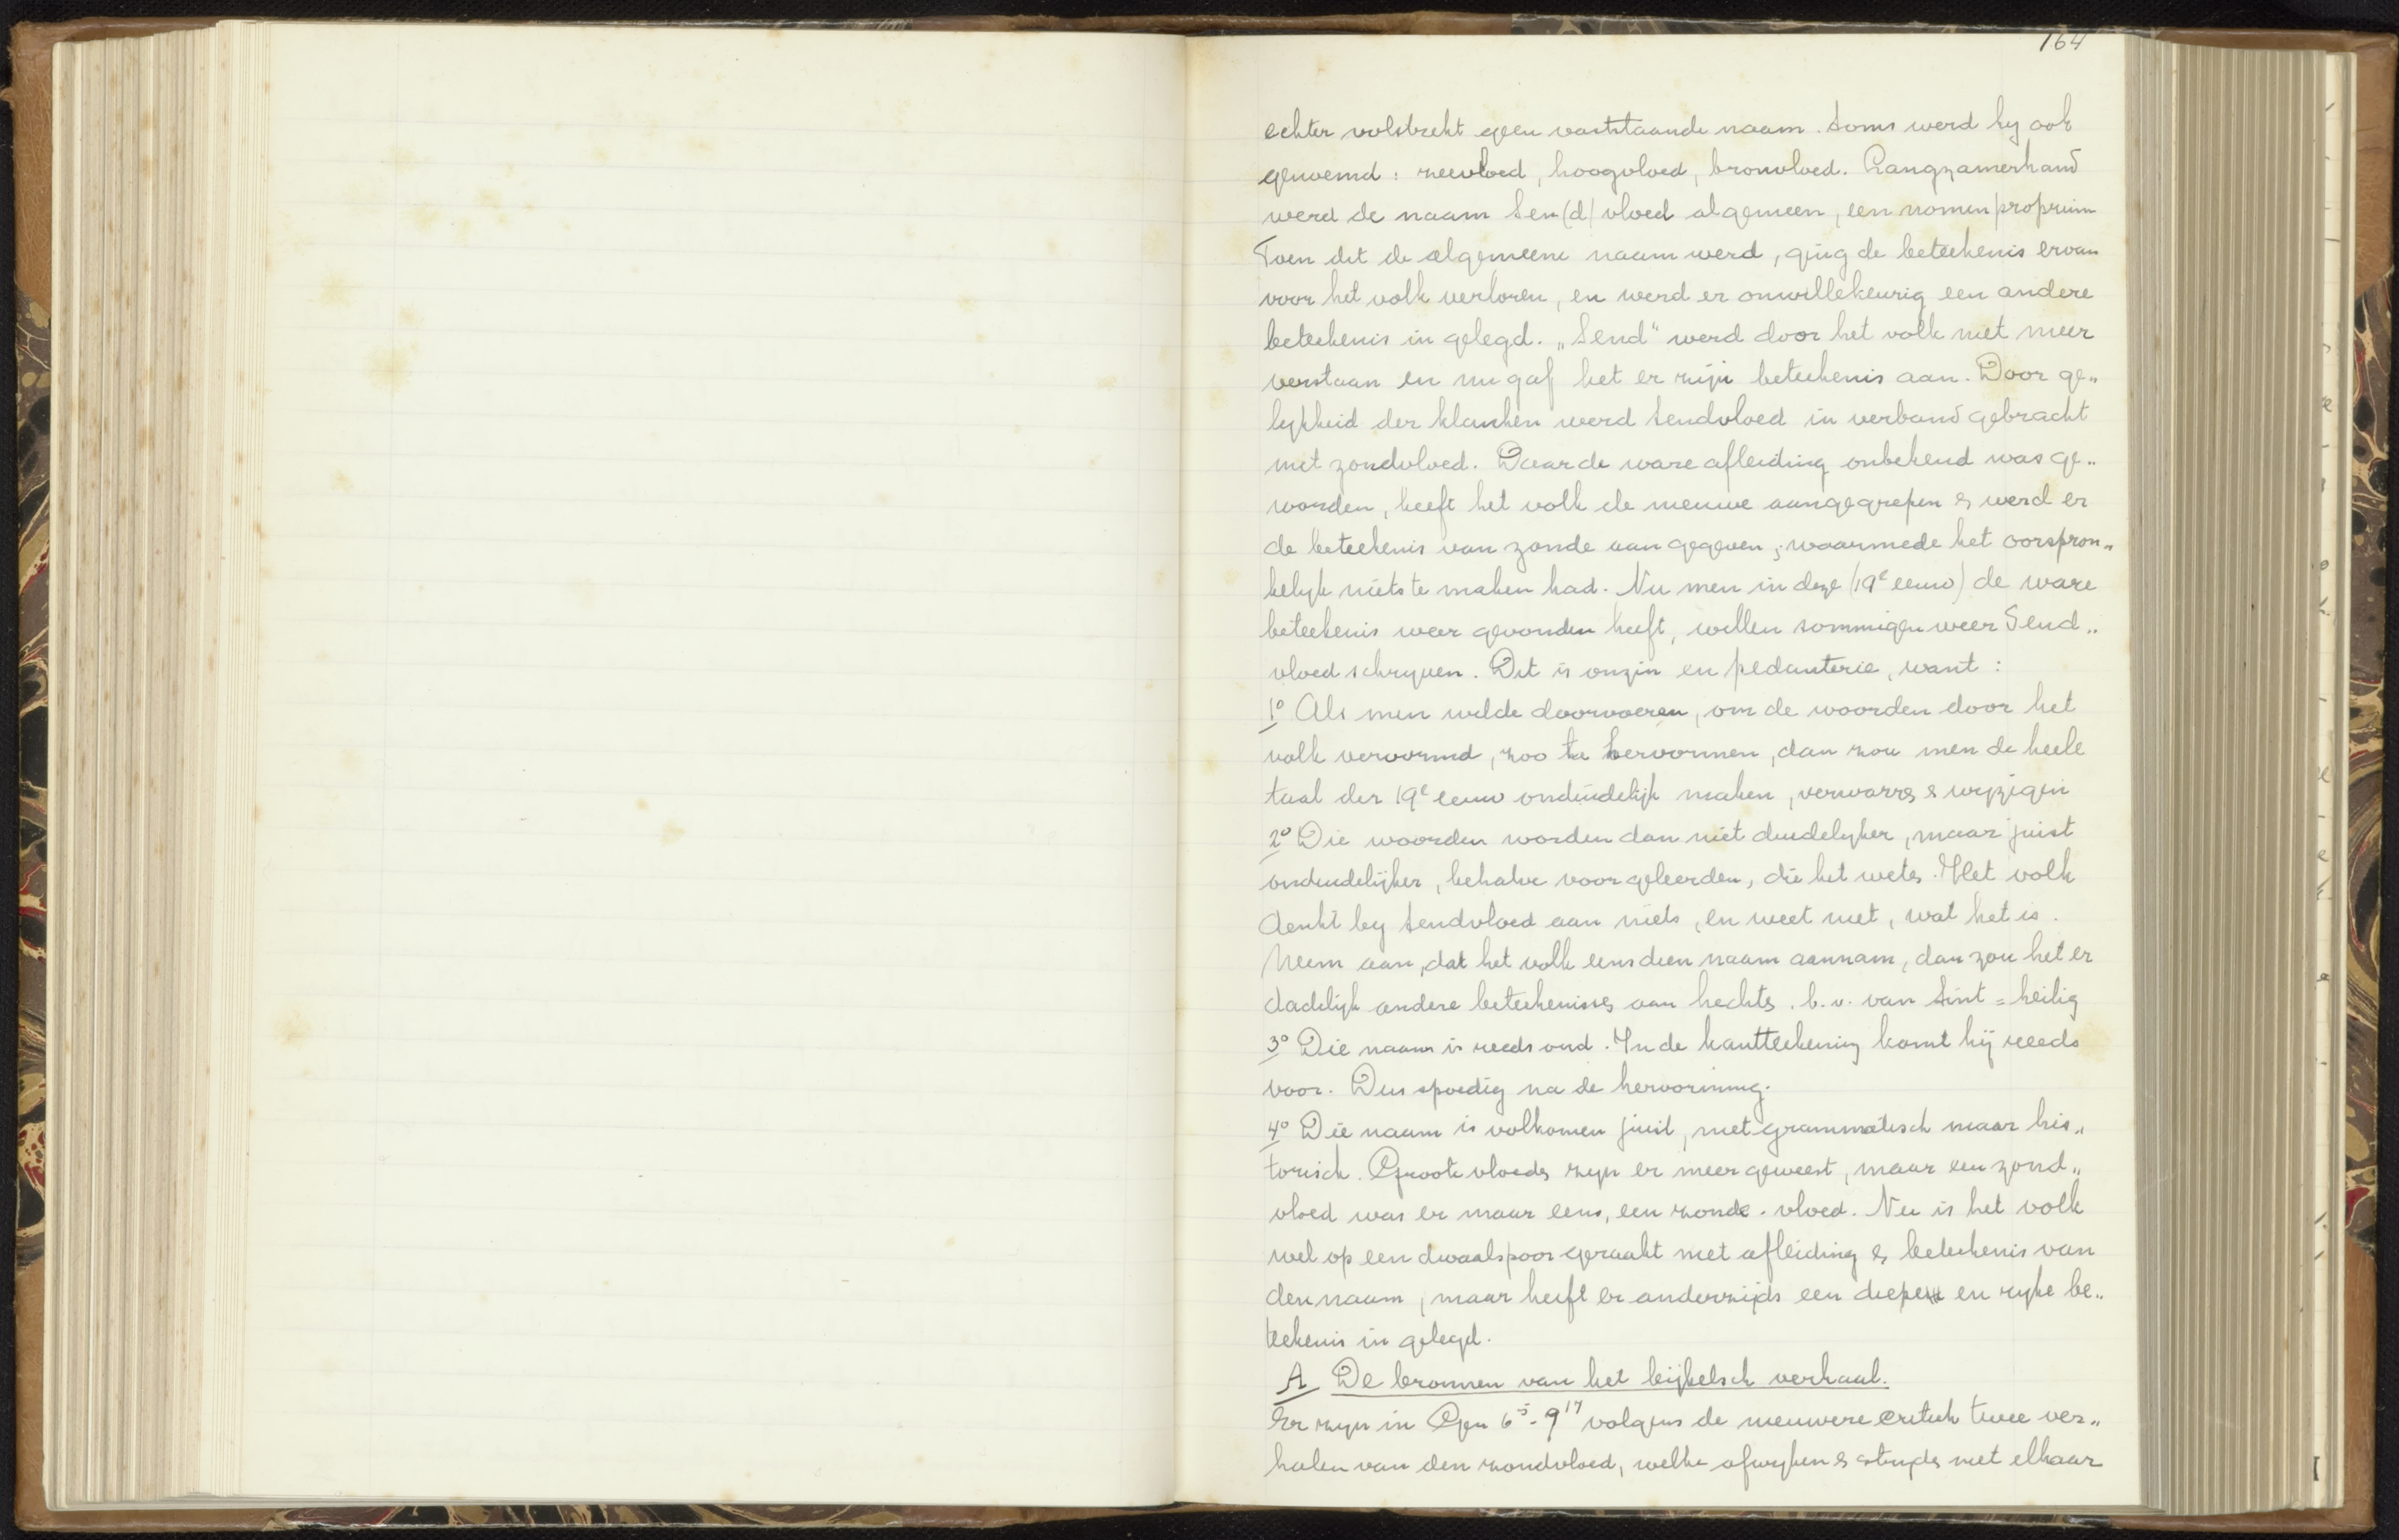 164
echter volstrekt geen vaststaande naam. Soms werd hy ook
genoemd: zeevloed, hoogvloed, bronvloed. Langzamerhand
werd de naam Sen(d) vloed algemeen, een nomen proprium
Toen dit de algemeene naam werd, ging de beteekenis ervan
voor het volk verloren, en werd er onwillekeurig een andere
beteekenis in gelegd. „Send" werd door het volk niet meer
verstaan en nu gaf het er zijn beteekenis aan. Door ge„
lykheid der klanken werd Sendvloed in verband gebracht
met zondvloed. Daar de ware afleiding onbekend was ge„
worden, heeft het volk de nieuwe aangegrepen & werd er
de beteekenis van zonde aan gegeven, waarmede het oorspron„
kelyk niets te maken had. Nu men in deze (19e eeuw) de ware
beteekenis weer gevonden heeft, willen sommigen weer Send„
vloed schryven. Dit is onzin en pedanterie, want:
1° Als men wilde doorvoeren, om de woorden door het
volk vervormd, zoo te hervormen, dan zou men de heele
taal der 19e eeuw onduidelijk maken, verwarren & wyzigen
2° Die woorden worden dan niet duidelyker, maar juist
onduidelijker, behalve voor geleerden, die het weten. Het volk
denkt by Sendvloed aan niets, en weet niet, wat het is.
Neem aan, dat het volk eens dien naam aannam, dan zou het er
dadelijk andere beteekenissen aan hechten. b.v. van Sint = heilig
3° Die naam is reeds oud. In de kantteekening komt hij reeds
voor. Dus spoedig na de hervorming.
4° Die naam is volkomen juist, niet grammatisch maar his„
torisch. Groote vloeden zyn er meer geweest, maar een zond„
vloed was er maar eens, een zonde-vloed. Nu is het volk
wel op een dwaalspoor geraakt met afleiding & beteekenis van
den naam, maar heeft er anderzijds een diepe en rijke be„
teekenis in gelegd.
A De bronnen van het bijbelsch verhaal.
Er zyn in Gen 6⁵-9¹⁷ volgens de nieuwere critiek twee ver„
halen van den zondvloed, welke afwyken & stryden met elkaar